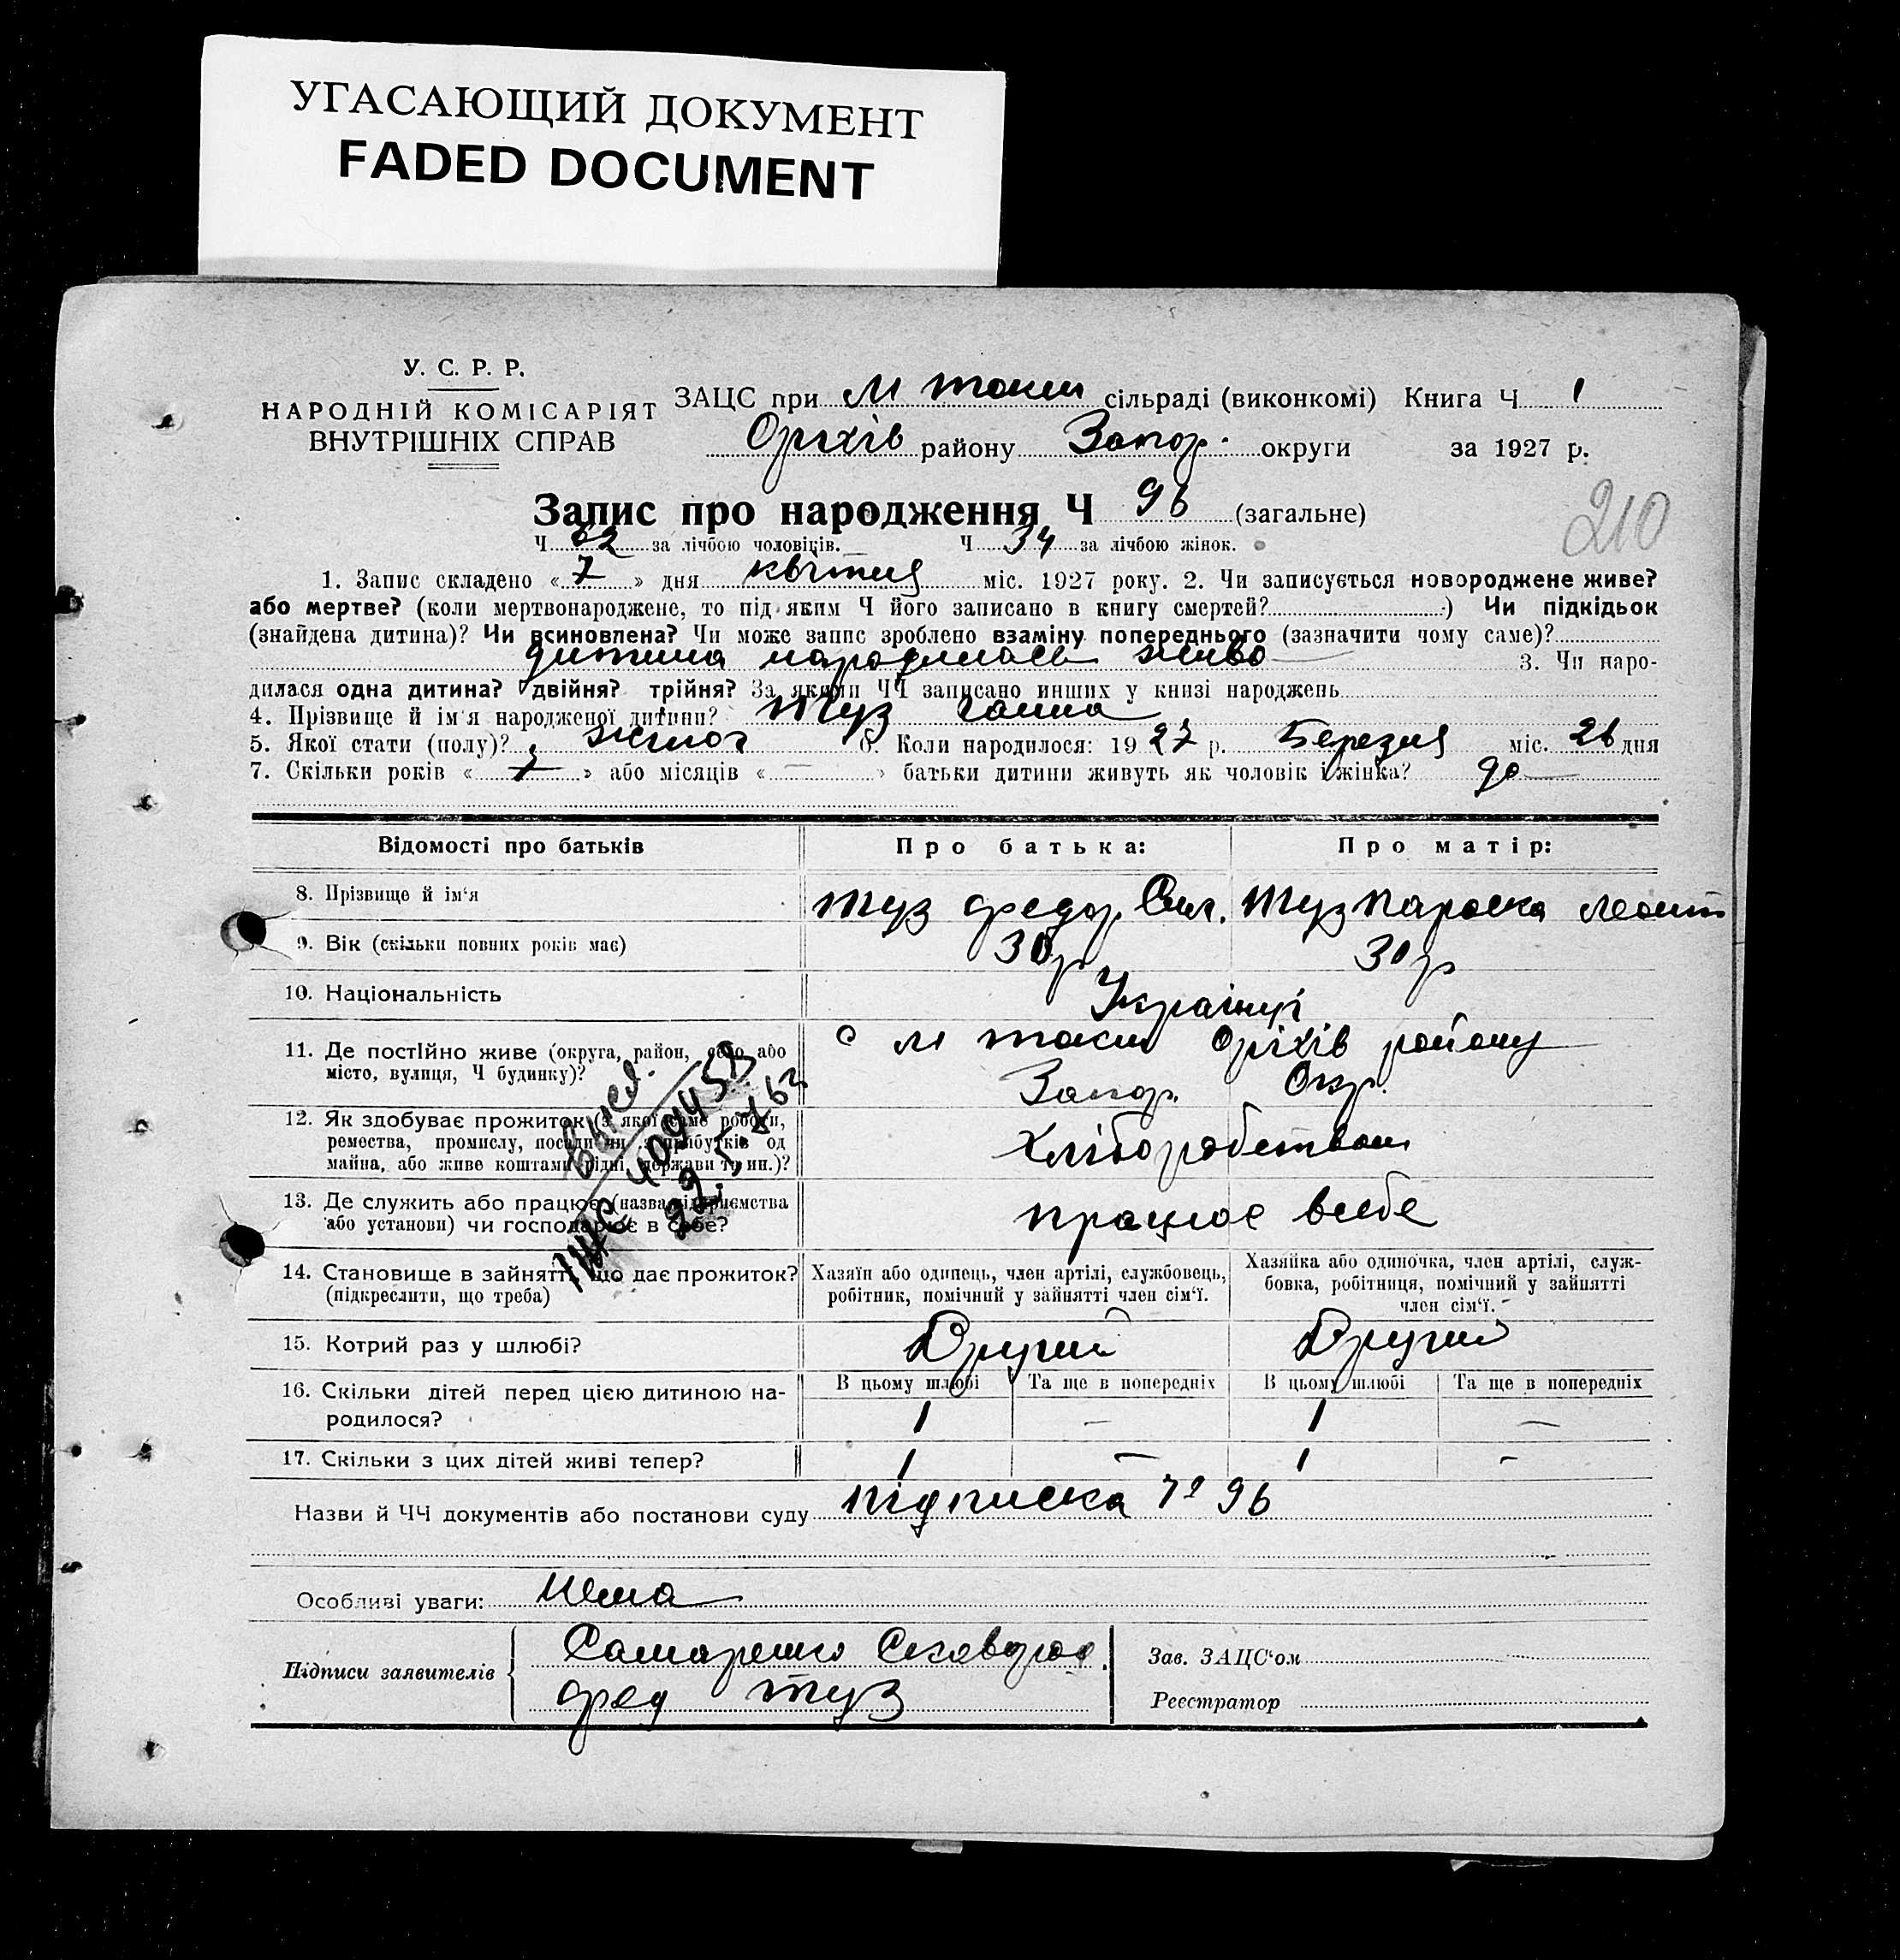 УГАСАЮЩИЙ ДОКУМЕНТ
FADED DOCUMENT
У. С. Р. Р.
НАРОДНІЙ КОМІСАРІЯТ
ВНУТРІШНІХ СПРАВ
ЗАЦС при М Токм сільраді (виконкомі) Книга Ч 1
Оріхів району Запор. округи за 1927 р.
210
Запис про народження Ч 96 (загальне)
Ч 62 за лічбою чоловіків. Ч 34 за лічбою жінок.
1. Запис складено «7» дня квітня міс. 1927 року. 2. Чи записується новороджене живе?
або мертве? (коли мертвонароджене, то під яким Ч його записано в книгу смертей? ) Чи підкідьок
(знайдена дитина)? Чи всиновлена? Чи може запис зроблено взаміну попереднього (зазначити чому саме)?
дитина народилась живо 3. Чи наро-
дилася одна дитина? двійня? трійня? За якими ЧЧ записано инших у книзі народжень
4. Прізвище й ім'я народженої дитини? Туз Ганна
5. Якої стати (полу)? жіноч 6. Коли народилося: 1927 р. Березня міс. 26 дня
7. Скільки років «7» або місяців «—» батьки дитини живуть як чоловік і жінка? до
Відомості про батьків Про батька: Про матір:
8. Прізвище й ім'я Туз Федор Туз Параска Леонт
9. Вік (скільки повних років має) 30 р 30 р
10. Національність Українці
11. Де постійно живе (округа, район, село або с М Токм Оріхів району
місто, вулиця, Ч будинку)? Запор. Окр.
12. Як здобуває прожиток (з якої саме роботи,
ремества, промислу, посади чи з прибутків од Хліборобством
майна, або живе коштами рідні, держави та ин.)?
13. Де служить або працює (назва підприємства працює в себе
або установи) чи господарює в себе?
14. Становище в зайнятті, що дає прожиток?
(підкреслити, що треба)
Хазяїн або одинець, член артілі, службовець,
робітник, помічний у зайнятті член сім'ї.
Хазяйка або одиночка, член артілі, служ-
бовка, робітниця, помічний у зайнятті
член сім'ї.
15. Котрий раз у шлюбі? Другий Другий
16. Скільки дітей перед цією дитиною на-
родилося?
В цьому шлюбі Та ще в попередніх В цьому шлюбі Та ще в попередніх
1 — 1 —
17. Скільки з цих дітей живі тепер? 1 — 1 -
Назви й ЧЧ документів або постанови суду підписка № 96
Особливі уваги: Нема
Підписи заявителів
Фед Туз
Зав. ЗАЦС'ом
Реєстратор